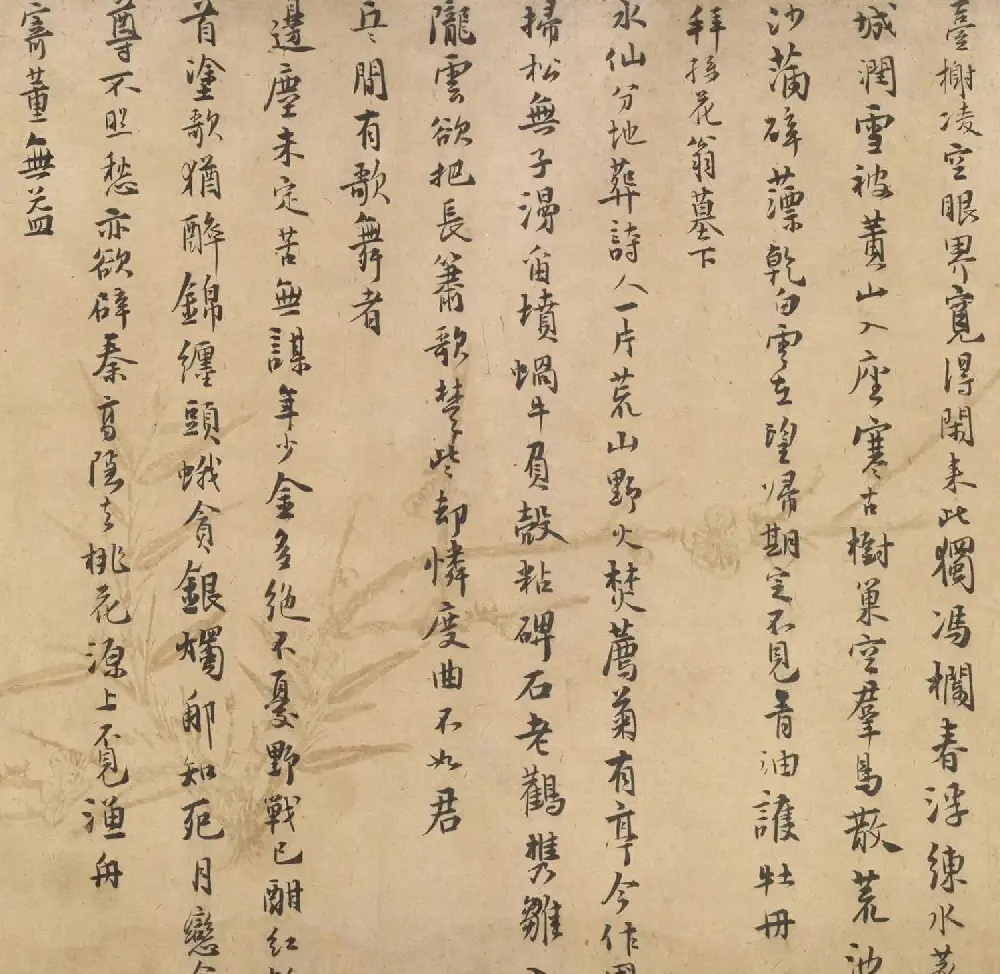 臺榭凌空眼界寬得閑来此獨馮欄春浮練水
城潤雪被黃山入座寒古樹巢空羣鳥散荒池
沙蒲碎藻乾白雲在望歸期定不見青油護牡丹
拜孫花翁墓下
水仙分地葬詩人一片荒山野火焚薦菊有亭今作
掃松無子漫留墳蝸牛負殼粘碑石老鶴攜雛入
隴雲欲把長簫歌楚些却憐度曲不如君
兵間有歌舞者
邊塵未定苦無謀年少金多绝不憂野戰已酣紅
首塗歌猶醉錦纏頭蛾貪銀燭那知死月戀金
尊不照愁亦欲辟秦高隱去桃花源上覓漁舟
寄董無益